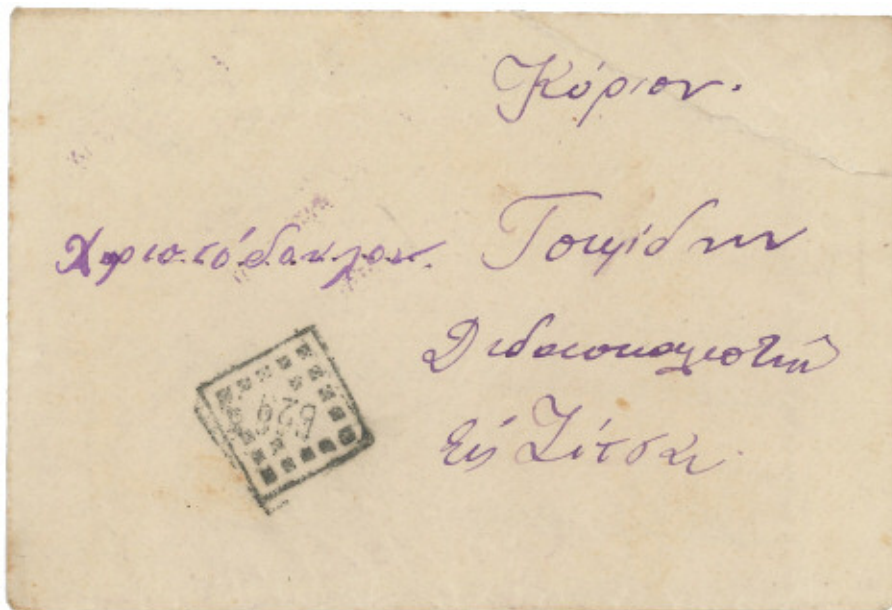 Κύριον.
Χριστόδουλον.
Διδασκαλιστὴν
Εἰς Ζίτσαν
629